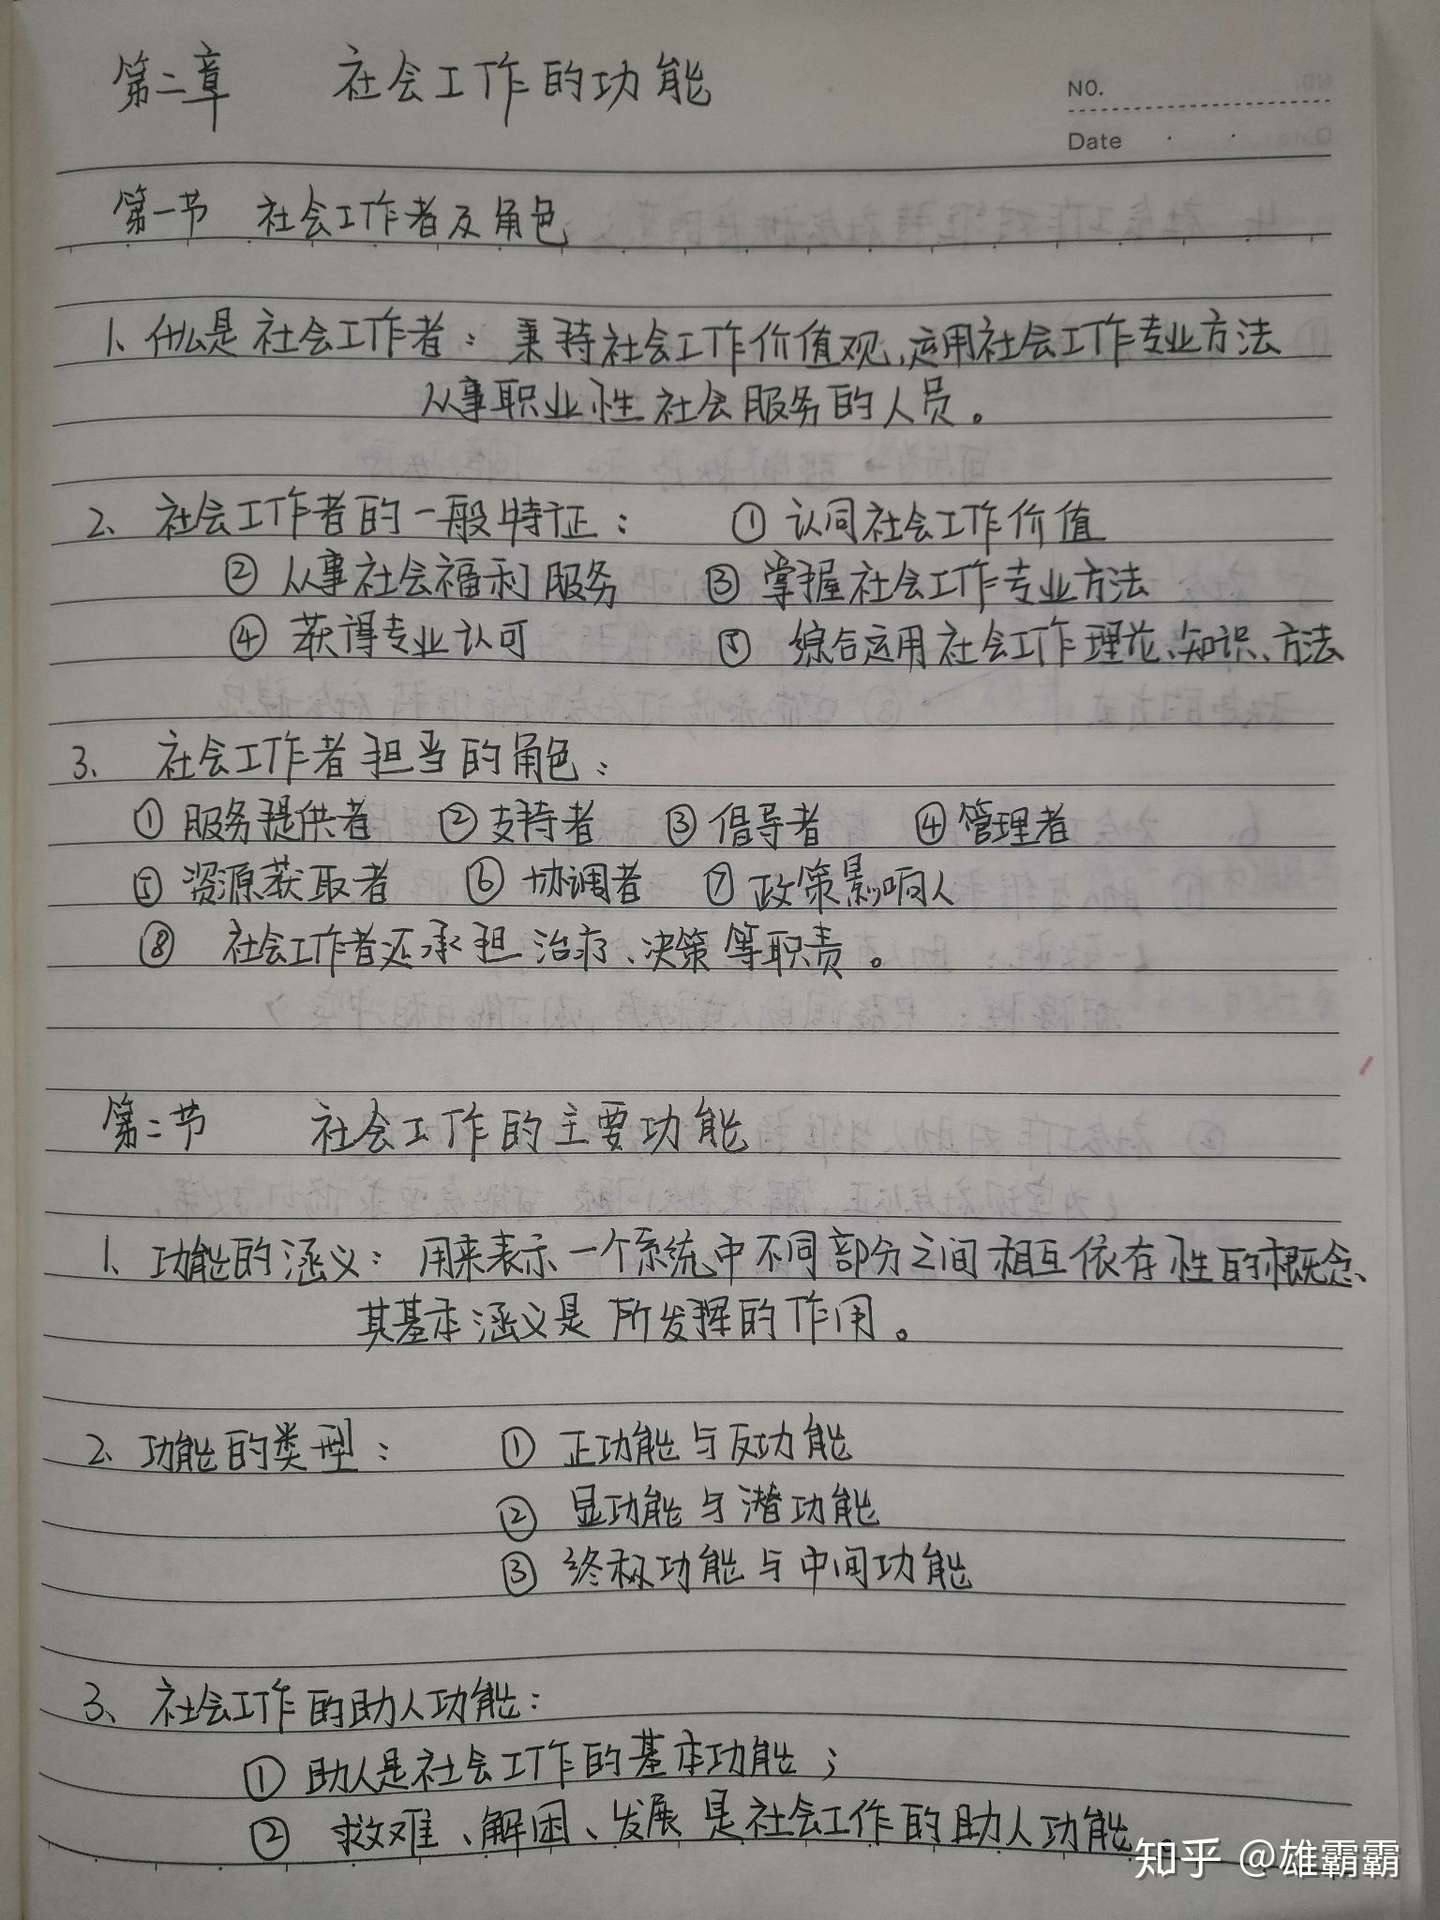 第二章 社会工作的功能
NO.
Date
第一节 社会工作者及角色
1、什么是社会工作者：秉持社会工作价值观、运用社会工作专业方法
从事职业性社会服务的人员。
2、社会工作者的一般特征： ①认同社会工作价值
②从事社会福利服务 ③掌握社会工作专业方法
④获得专业认可 ⑤综合运用社会工作理论、知识、方法
3、社会工作者担当的角色：
①服务提供者 ②支持者 ③倡导者 ④管理者
⑤资源获取者 ⑥协调者 ⑦政策影响人
⑧社会工作者还承担治疗、决策等职责。
第二节 社会工作的主要功能
1、功能的涵义：用来表示一个系统中不同部分之间相互依存性的概念、
其基本涵义是所发挥的作用。
2、功能的类型： ①正功能与反功能
②显功能与潜功能
③终极功能与中间功能
3、社会工作的助人功能：
①助人是社会工作的基本功能；
②救难、解困、发展是社会工作的助人功能
知乎 @雄霸霸